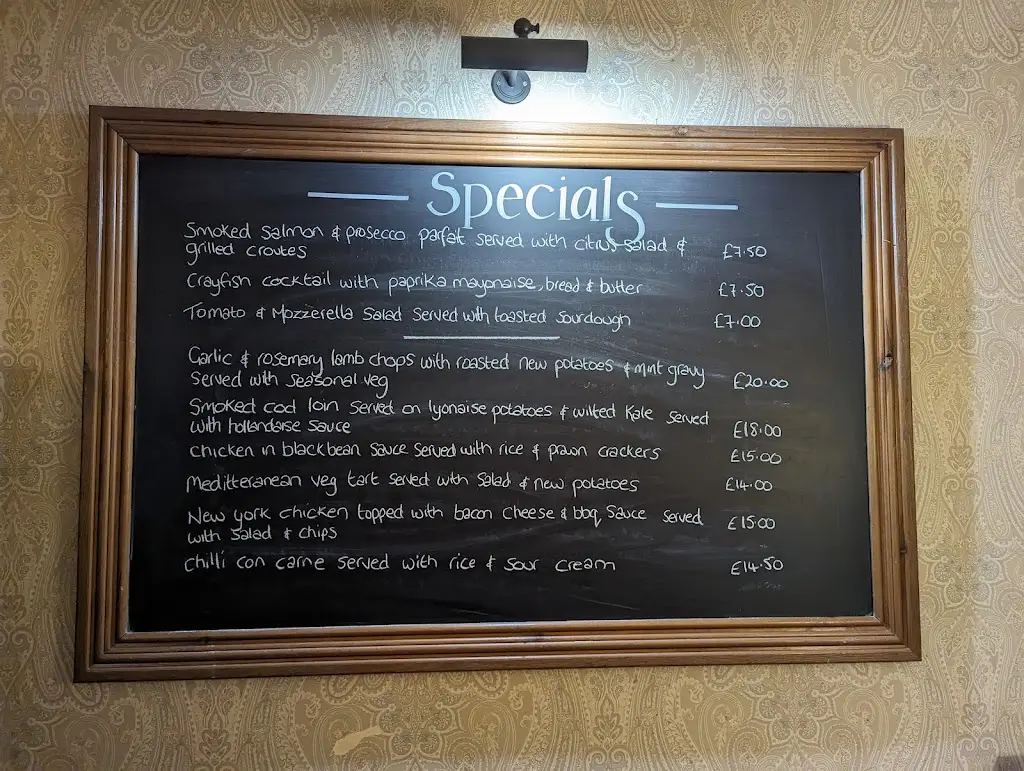 Specials
Smoked Salmon & prosecco parfait served with citrus salad &
grilled croutes £7.50
Crayfish cocktail with paprika mayonaise, bread & butter £7.50
Tomato & Mozzerella Salad Served with toasted Sourdough £7.00
Garlic & rosemary lamb chops with roasted new potatoes & mint gravy
Served with seasonal veg £20.00
Smoked cod loin served on lyonaise potatoes & wilted Kale served
with hollandaise sauce £18.00
Chicken in blackbean Sauce Served with rice & prawn crackers £15.00
Meditteranean veg tart served with Salad & new potatoes £14.00
New York chicken topped with bacon cheese & bbq Sauce served
with salad & chips £15.00
Chilli con carne served with rice & sour cream £14.50